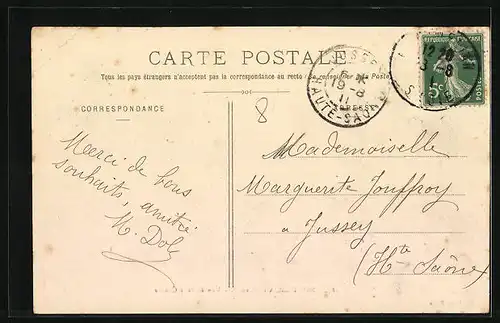 CARTE POSTALE
Tous les pays étrangers n'acceptent pas la correspondance au recto (Se renseigner à la Poste)
CORRESPONDANCE
8
JUSSEY
19-8
11
HAUTE-SAONE
POSTES
5c
Merci de bons
souhaits, amitié
M. Dol
Mademoiselle
Marguerite Jouffroy
à Jussey
(Hte Saône)